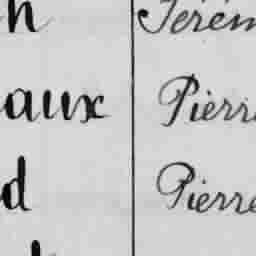 h Jérém
aux Pierre
d Pierre